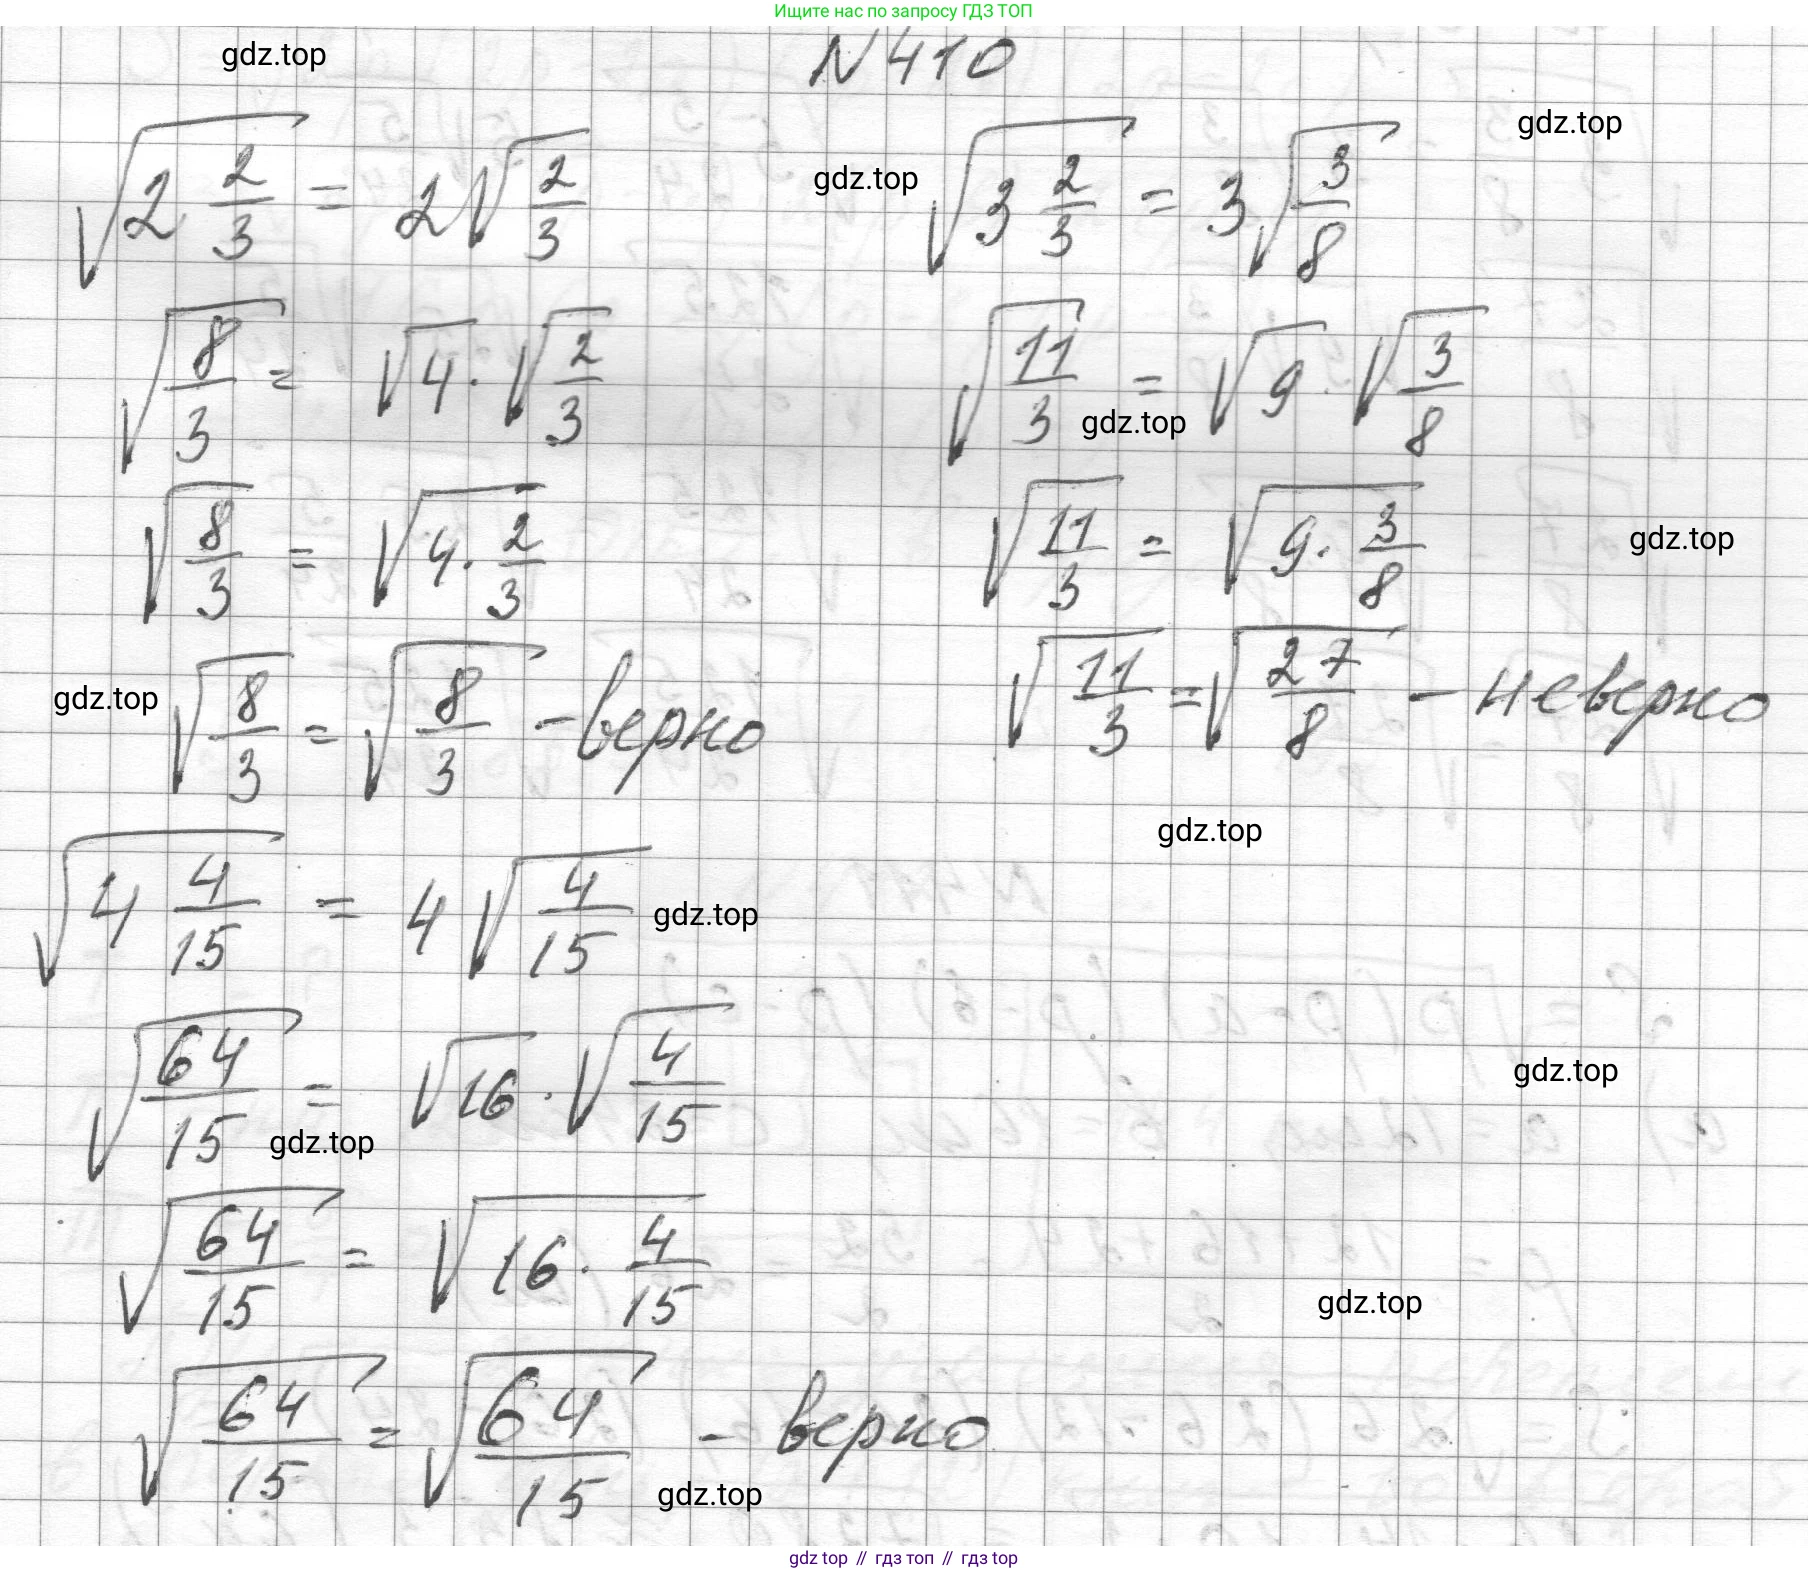 Ищите нас по запросу ГДЗ ТОП
gdz.top
N 410
√(2 2/3) = 2√(2/3)
gdz.top
√(3 2/3) = 3√(3/8)
gdz.top
√(8/3) = √4 · √(2/3)
√(11/3) = √9 · √(3/8)
gdz.top
√(8/3) = √(4 · 2/3)
√(11/3) = √(9 · 3/8)
gdz.top
gdz.top
√(8/3) = √(8/3) - верно
√(11/3) = √(27/8) - неверно
gdz.top
√(4 4/15) = 4√(4/15)
gdz.top
√(64/15) = √16 · √(4/15)
gdz.top
gdz.top
√(64/15) = √(16 · 4/15)
gdz.top
√(64/15) = √(64/15) - верно
gdz.top
gdz top // гдз топ // гдз top